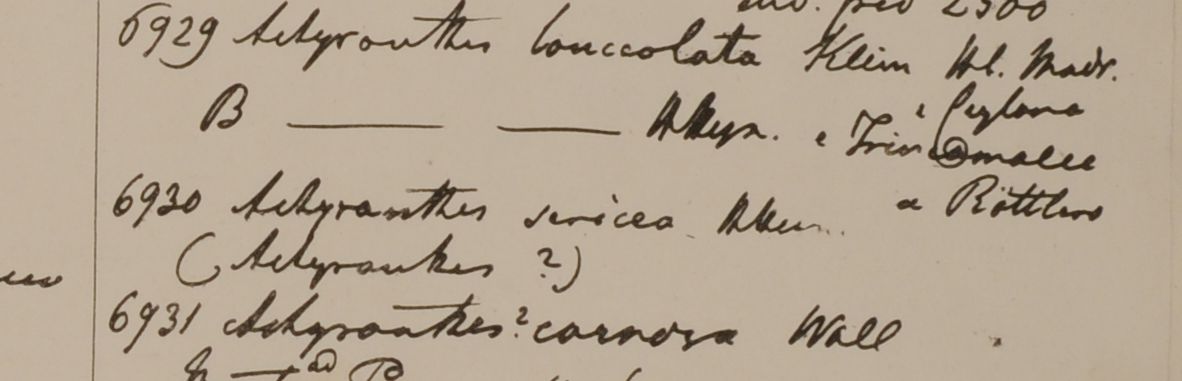 ped 2500
6929 Achyranthes lanceolata Klein Hb. Madr.
B — — HHeyn. e Ceylona
e Trincomalee
6930 Achyranthes sericea HHeyn. a Rottlero
(Achyranthes ?)
6931 Achyranthes? carnosa Wall